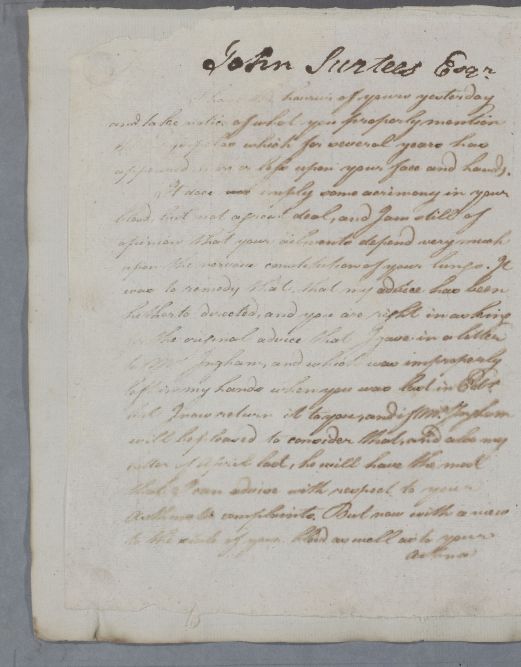 John Surtees Esqr
honour of yours yesterday
and take notice of what you properly mention
which for several years has
appeared more or less upon your face and hands.
It does imply some acrimony in your
blood, but not a great deal, and I am still of
opinion that your ailments depend very much
upon the nervous constitution of your lungs. It
was to remedy that, that my advice has been
hitherto directed, and you are right in asking
for the original advice that I gave in a letter
to Mr Ingham, and which was improperly
left in my hands when you was last in Edr
but I now return it to you, and if Mr Ingham
will be pleased to consider that, and also my
letter of April last, he will have the most
that I can advise with respect to your
Asthmatic complaints. But now with a view
to the state of your blood as well as to your